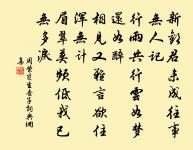 新歡君未成往事
無人記
行雨共行雲如夢
還如醉
相見又難言欲住
渾無計
眉翠莫頻低我已
無多淚
周紫芝生查子詞典網
集